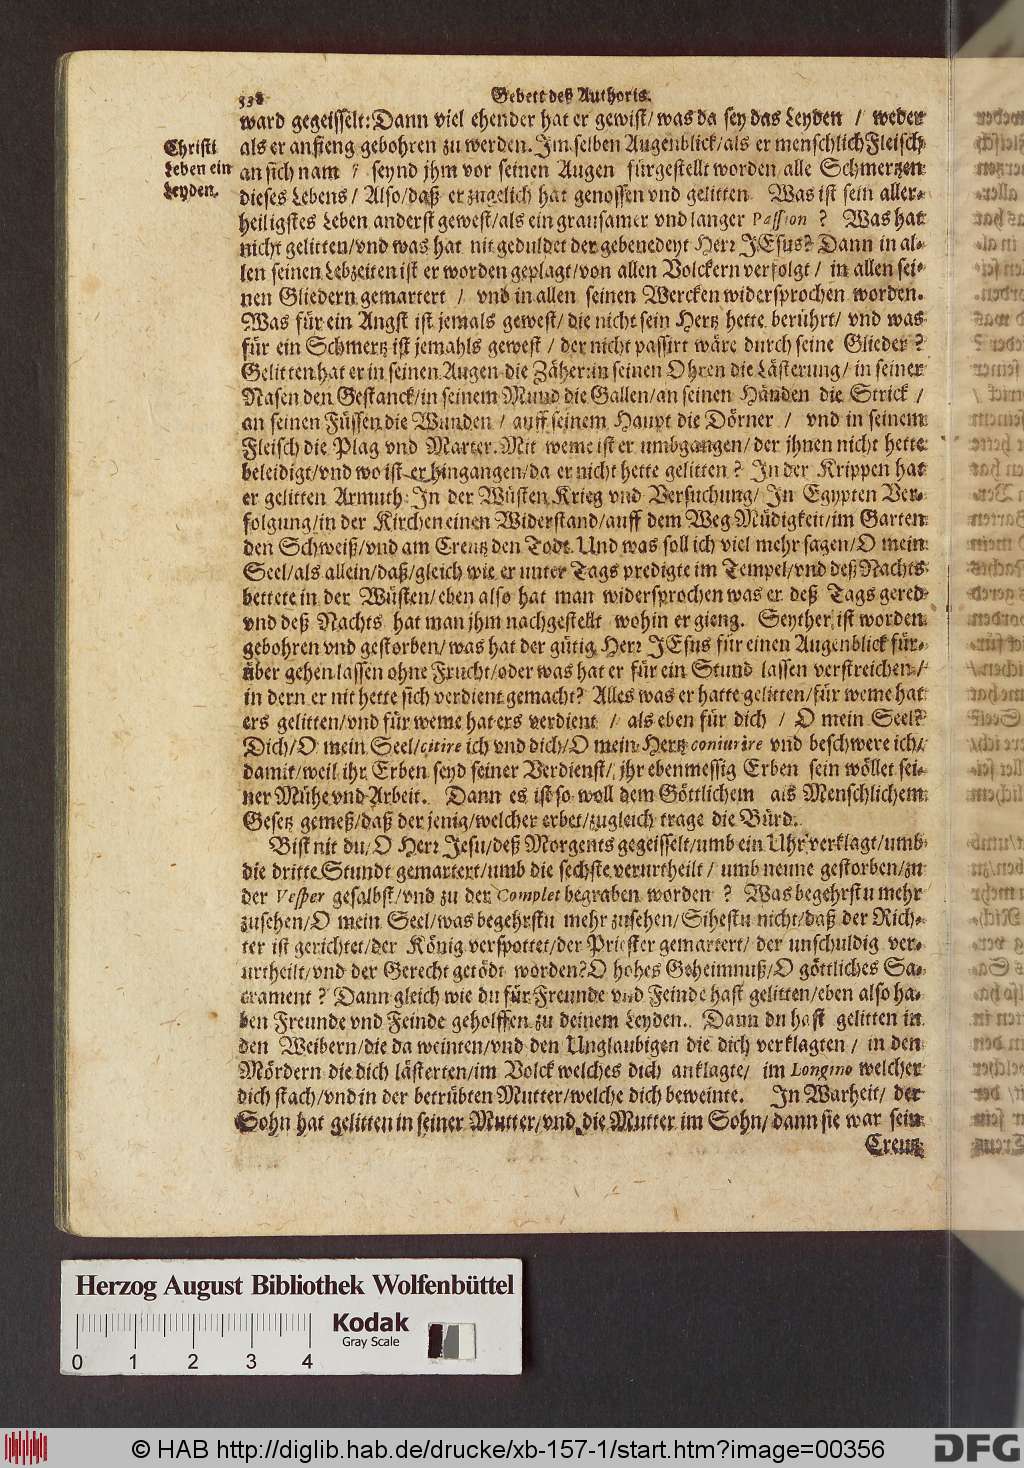 338
Gebett deß Authoris.
ward gegeisselt: Dann viel ehender hat er gewist/ was da sey das Leyden / weder
als er anfieng gebohren zu werden. Im selben Augenblick/ als er menschlich Fleisch
an sich nam / seynd jhm vor seinen Augen fürgestellt worden alle Schmertzen
dieses Lebens / Also/ daß er zugelich hat genossen vnd gelitten. Was ist sein aller-
heiligstes Leben anderst gewest/ als ein grausamer vnd langer Passion ? Was hat
nicht gelitten/ vnd was hat nit geduldet der gebenedeyt Herr JEsus? Dann in al-
len seinen Lebzeiten ist er worden geplagt/ von allen Volckern verfolgt / in allen sei-
nen Gliedern gemartert / vnd in allen seinen Wercken widersprochen worden.
Was für ein Angst ist jemals gewest/ die nicht sein Hertz hette berührt/ vnd was
für ein Schmertz ist jemahls gewest / der nicht passirt wäre durch seine Glieder ?
Gelitten hat er in seinen Augen die Zäher: in seinen Ohren die Lästerung/ in seiner
Nasen den Gestanck/ in seinem Mund die Gallen/ an seinen Händen die Strick /
an seinen Füssen die Wunden / auff seinem Haupt die Dörner / vnd in seinem
Fleisch die Plag vnd Marter. Mit weme ist er umbgangen/ der jhnen nicht hette
beleidigt/ vnd wo ist er hingangen/ da er nicht hette gelitten ? In der Krippen hat
er gelitten Armuth: In der Wüsten Krieg vnd Versuchung/ In Egypten Ver-
folgung/ in der Kirchen einen Widerstand/ auff dem Weg Müdigkeit/ im Garten
den Schweiß/ vnd am Creutz den Todt. Und was soll ich viel mehr sagen/ O mein
Seel/ als allein/ daß/ gleich wie er unter Tags predigte im Tempel/ vnd deß Nachts
bettete in der Wüsten/ eben also hat man widersprochen was er deß Tags gered
vnd deß Nachts hat man jhm nachgestellt wohin er gieng. Seyther ist worden
gebohren vnd gestorben/ was hat der gütig Herr JEsus für einen Augenblick für-
über gehen lassen ohne Frucht/ oder was hat er für ein Stund lassen verstreichen /
in dern er nit hette sich verdient gemacht? Alles was er hatte gelitten/ für weme hat
ers gelitten/ vnd für weme hat ers verdient / als eben für dich / O mein Seel?
Dich/ O mein Seel/ citire ich vnd dich/ O mein Hertz coniurire vnd beschwere ich/
damit/ weil ihr Erben seyd seiner Verdienst/ jhr ebenmessig Erben sein wöllet sei-
ner Mühe vnd Arbeit. Dann es ist so woll dem Göttlichem als Menschlichem
Gesetz gemeß/ daß der jenig/ welcher erbet/ zugleich trage die Bürd.
Bist nit du/ O Herr Jesu/ deß Morgents gegeisselt/ umb ein Uhr verklagt/ umb
die dritte Stundt gemartert/ umb die sechste verurtheilt / umb neune gestorben/ zu
der Vesper gesalbst/ vnd zu der Complet begraben worden ? Was begehrstu mehr
zusehen/ O mein Seel/ was begehrstu mehr zusehen/ Sihestu nicht/ daß der Rich-
ter ist gerichtet/ der König verspottet/ der Priester gemartert/ der unschuldig ver-
urtheilt/ vnd der Gerecht getödt worden? O hohes Geheimnuß/ O göttliches Sa-
crament ? Dann gleich wie du für Freunde vnd Feinde hast gelitten/ eben also ha-
ben Freunde vnd Feinde geholffen zu deinem Leyden. Dann du hast gelitten in
den Weibern/ die da weinten/ vnd den Unglaubigen die dich verklagten / in den
Mördern die dich lästerten/ im Volck welches dich anklagte/ im Longino welcher
dich stach/ vnd in der betrübten Mutter/ welche dich beweinte. In Warheit/ der
Sohn hat gelitten in seiner Mutter/ vnd die Mutter im Sohn/ dann sie war sein
Creutz
Christi
Leben ein
Leyden.
Herzog August Bibliothek Wolfenbüttel
0 1 2 3 4
Kodak
Gray Scale
© HAB http://diglib.hab.de/drucke/xb-157-1/start.htm?image=00356
DFG